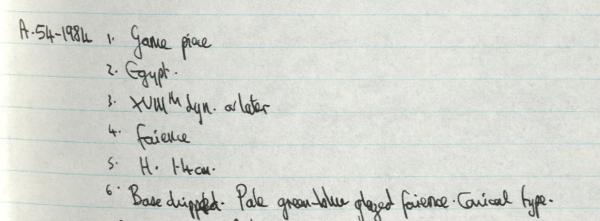 A.54-1984 1. Game piece
2. Egypt.
3. XVIIIth dyn. or later
4. faience
5. H. 1.4cm.
6. Base chipped. Pale green-blue glazed faience. Conical type.